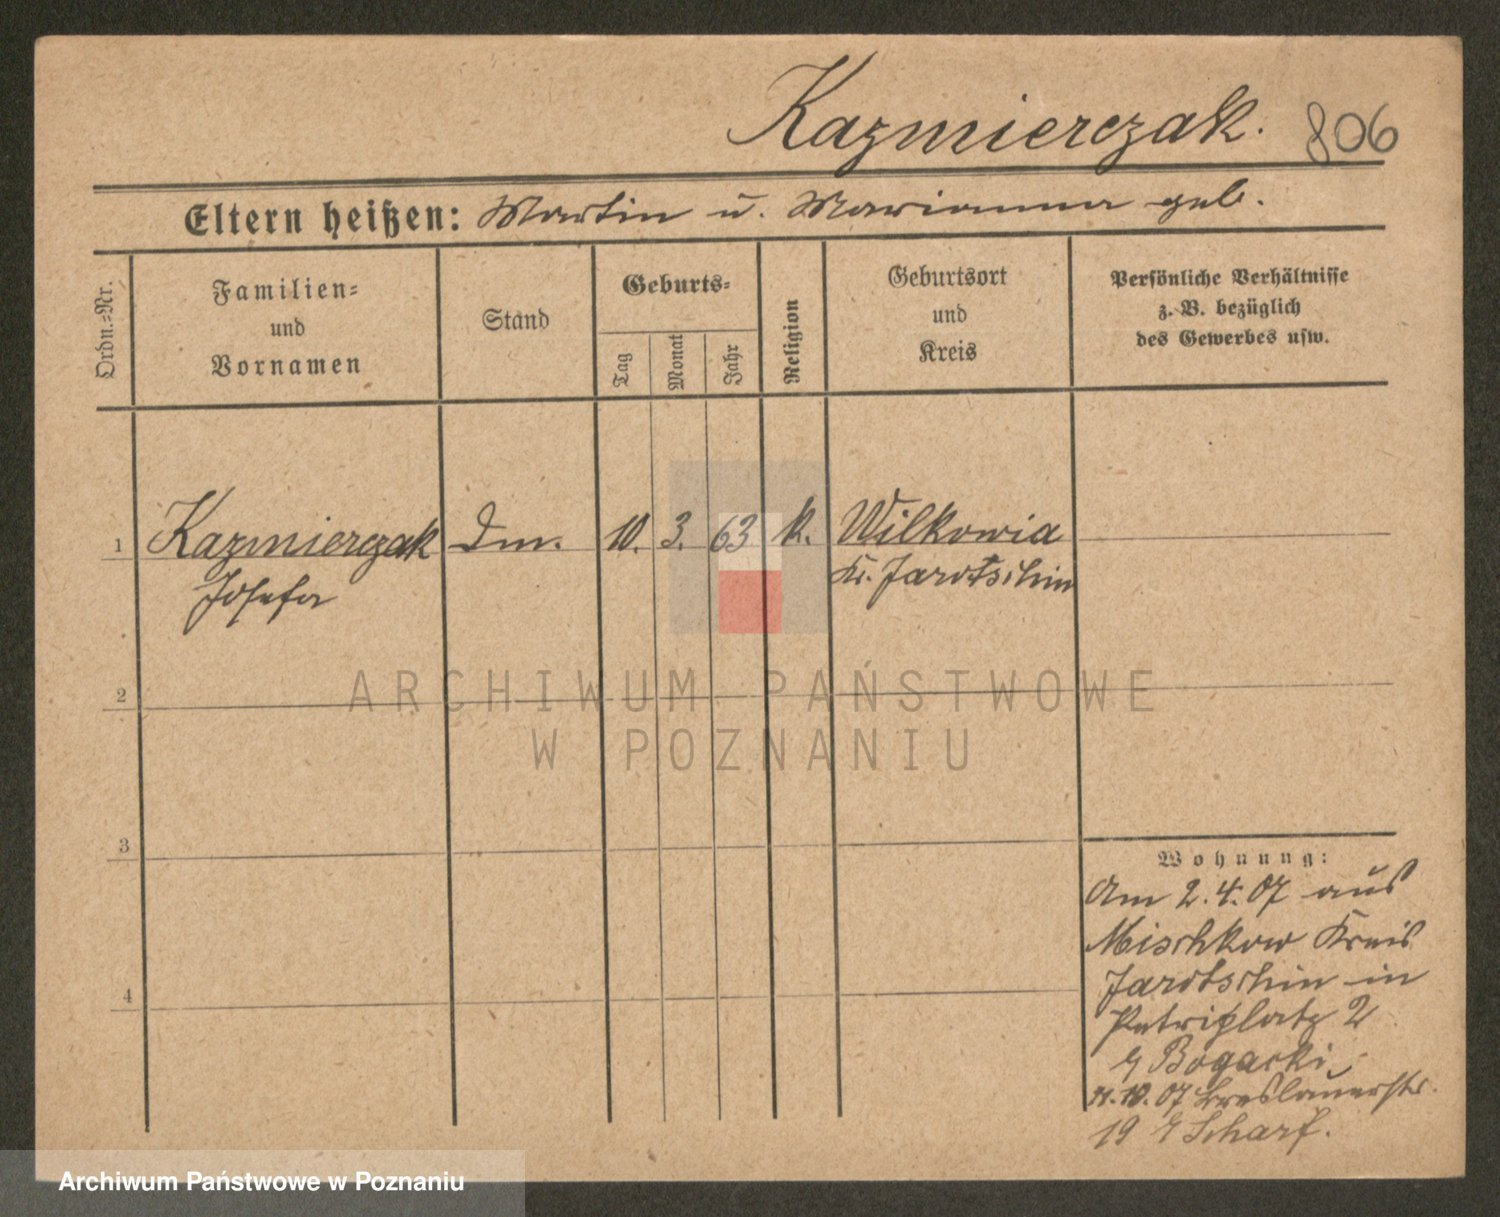 Kazmierczak. 806
Eltern heißen: Martin u. Marianna geb.
Ordn.-Nr.
Familien-
und
Vornamen
Stand
Geburts-
Tag
Monat
Jahr
Religion
Geburtsort
und
Kreis
Persönliche Verhältnisse
z. B. bezüglich
des Gewerbes usw.
1 Kazmierczak 10. 3. 63 k. Wilkowia
Josefa Kr. Jarotschin
2
ARCHIWUM PAŃSTWOWE
W POZNANIU
3
4
Wohnung:
Am 2.4.07 aus
Mischkow Kreis
Jarotschin in
Petriplatz 2
Bogacki
10.07 Breslauerstr.
19 Scharf.
Archiwum Państwowe w Poznaniu